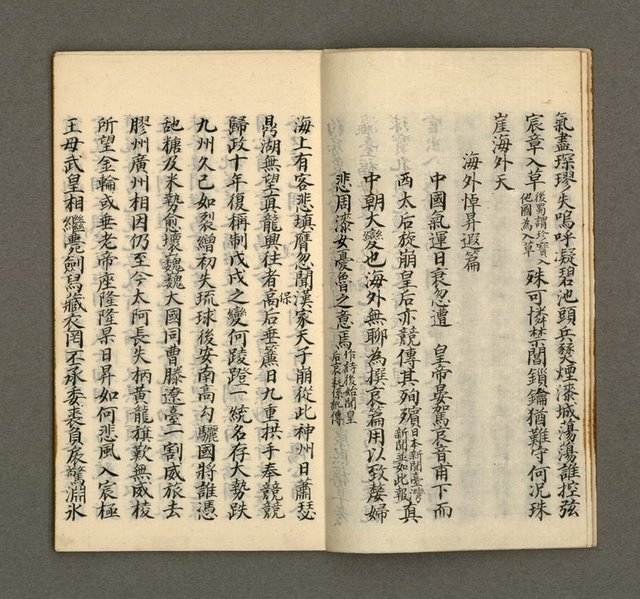 氣盡琛璆失嗚呼凝碧池頭兵燹煙漆城蕩蕩誰控弦
宸章入草後蜀謂珍寶入他國為入草殊可憐禁闥鎖鑰猶難守何況珠
崖海外天
海外悼昇遐篇
中國氣運日衰忽遭 皇帝晏駕哀音甫下而
西太后旋崩皇后亦競傳其殉殞日本新聞臺灣新聞並如此報真
中朝大變也海外無聊為撰哀篇用以致嫠婦
悲周漆女憂魯之意焉作詩後始聞皇后哀耗係訛傳
海上有客悲填膺忽聞漢家天子崩從此神州日蕭瑟
鼎湖無望真龍興往者高后垂簾日九重拱手奉競競
歸政十年復稱制戊戌之變何踜蹬一統名存大勢跌
九州久已如裂繒初失琉球後安南高勾驪國將誰憑保
訑糖及米勢愈壞魏魏大國同曹滕遼臺一割威旅去
膠州廣州相因仍至今太阿長失柄黃龍旗歎無威稜
所望金輪或垂老帝座隆隆杲日昇如何悲風入宸極
王母武皇相繼薨劍舄藏衣罔丕承委裘負扆驚淵冰